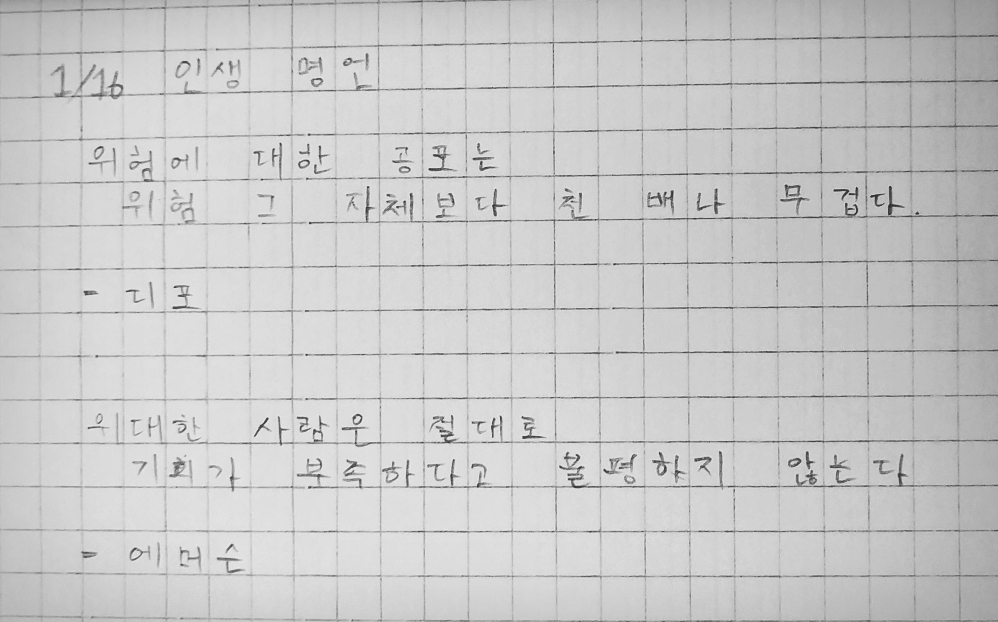 1/16 인생 명언
위험에 대한 공포는
위험 그 자체보다 천 배나 무겁다.
- 디포
위대한 사람은 절대로
기회가 부족하다고 불평하지 않는다
- 에머슨